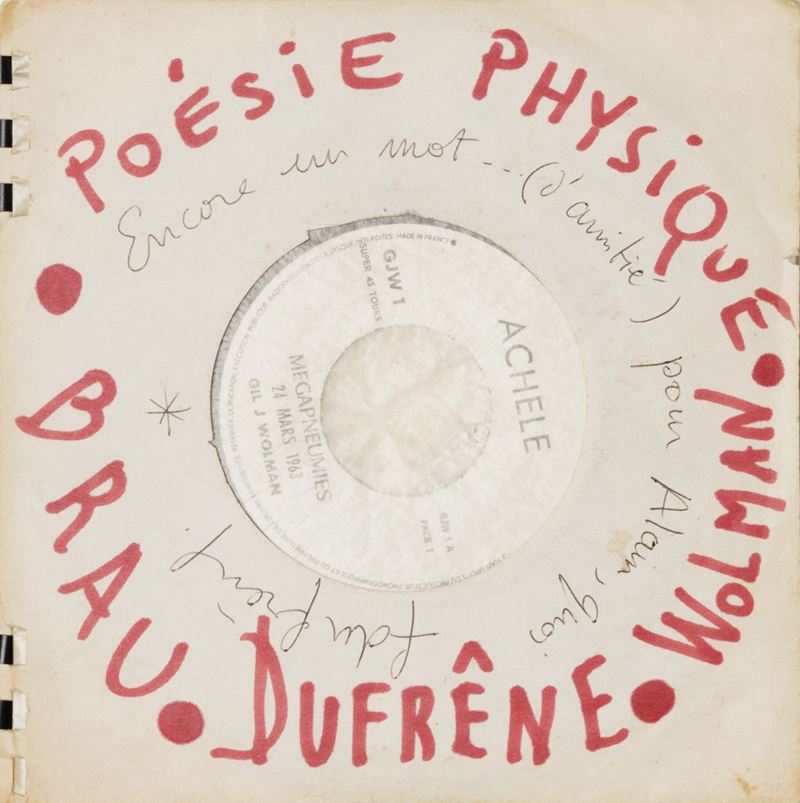 POÉSIE PHYSIQUE
WOLMAN
DUFRÊNE
BRAU
Encore un mot... (d'amitié) pour Alain,
MADE IN FRANCE
GJW 1
SUPER 45 TOURS
ACHELE
MEGAPNEUMIES
24 MARS 1963
GIL J WOLMAN
GJW 1 A
FACE 1